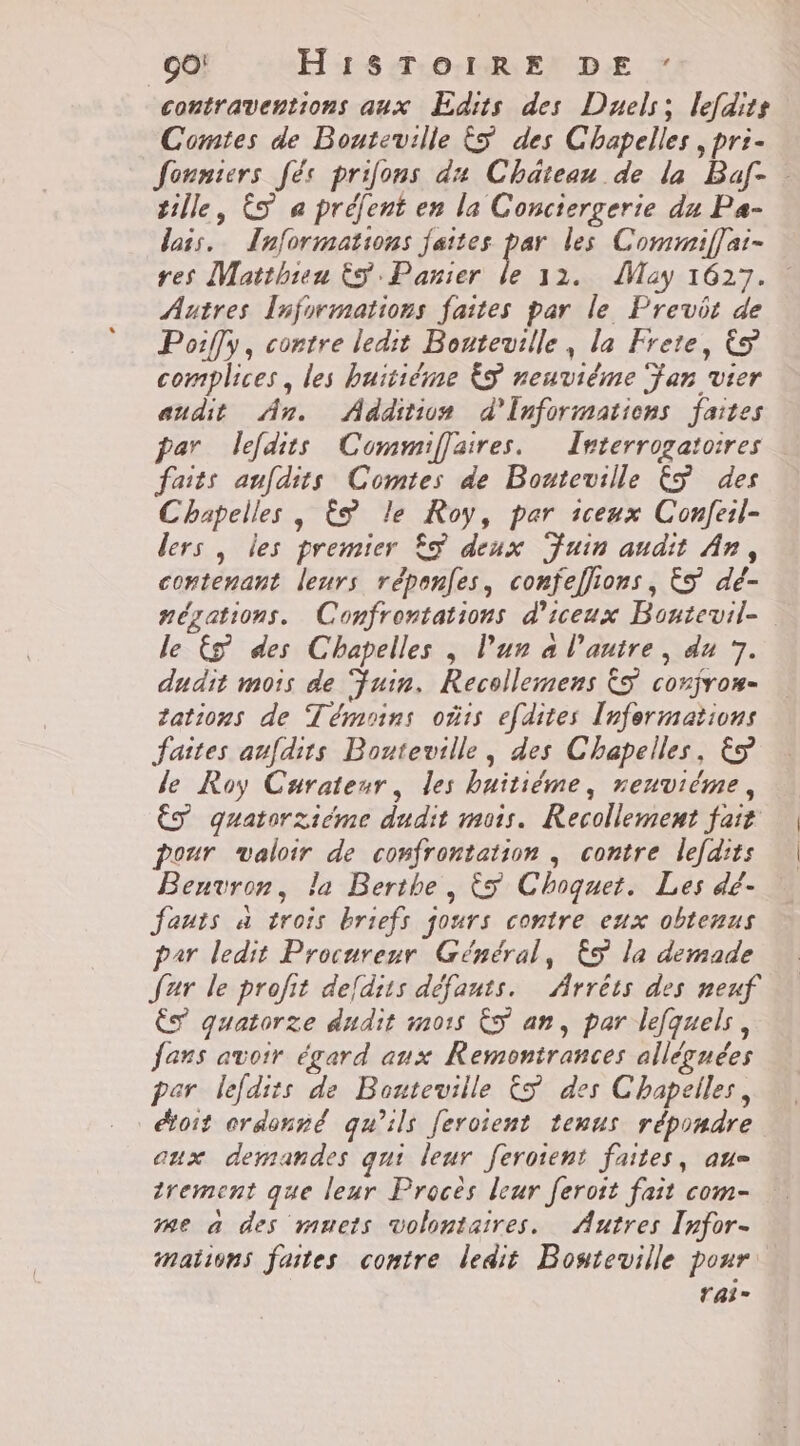 90 HISTOIRE DE
contraventions aux Edits des Duels; leſdits
Comtes de Bouteville & des Chapelles, pri-
ſonniers ſés priſons du Château de la Baſ-
tille, & a préſent en la Conciergerie du Pa-
lais. Informations faites par les Commiſſai-
res Matthieu & Panier le 12. May 1627.
Autres Informations faites par le Prevôt de
Poiſſy, contre ledit Bouteville, la Frete, &
complices, les huitiéme & neuviéme Jan vier
audit An. Addition d'Informations faites
par leſdits Commiſſaires. Interrogatoires
faits auſdits Comtes de Bouteville & des
Chapelles, & le Roy, par iceux Conſeil-
lers, les premier & deux Juin audit An,
contenant leurs réponſes, confeſſions, & dé-
négations. Confrontations d'iceux Boutevil-
le & des Chapelles, l'un à l'autre, du 7.
dudit mois de Juin. Recollemens & confron-
tations de Témoins oüis eſdites Informations
faites auſdits Bouteville, des Chapelles, &
le Roy Curateur, les huitiéme, neuviéme,
& quatorziéme dudit mois. Recollement fait
pour valoir de confrontation, contre leſdits
Beuvron, la Berthe, & Choquet. Les dé-
fauts à trois briefs jours contre eux obtenus
par ledit Procureur Général, & la demade
ſur le profit deſdits défauts. Arrêts des neuf
& quatorze dudit mois & an, par leſquels,
ſans avoir égard aux Remontrances alléguées
par leſdits de Bouteville & des Chapelles,
étoit ordonné qu'ils ſeroient tenus répondre
aux demandes qui leur ſeroient faites, au-
trement que leur Procès leur ſeroit fait com-
me à des muets volontaires. Autres Infor-
mations faites contre ledit Bouteville pour
rai-